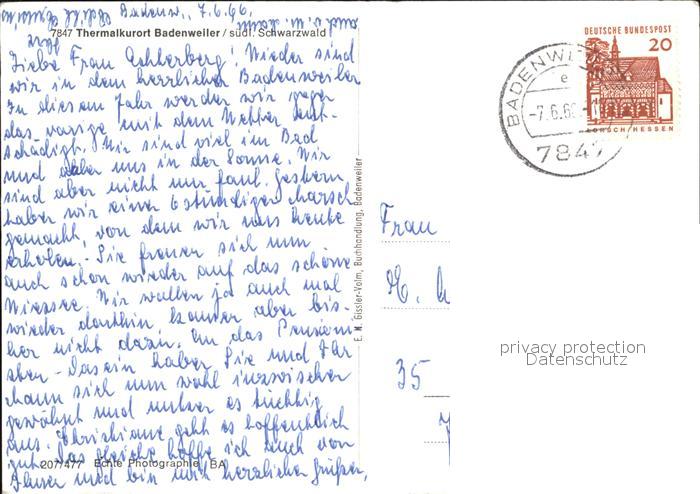 Badenw., 7.6.66.
7847 Thermalkurort Badenweiler / südl. Schwarzwald
Liebe Frau Achterberg! Wieder sind
wir in dem herrlichen Badenweiler
In diesem Jahr werden wir gegen
das vorige mit dem Wetter ent-
schädigt. Wir sind viel im Bad
und aber uns in der Sonne. Wir
sind aber nicht nur faul. Gestern
haben wir einen 6stündigen Marsch
gemacht, von dem wir uns heute
erholen. - Sie freuen sich nun
auch schon wieder auf das schöne
Wiessee. Wir wollen ja auch mal
wieder dorthin, kamen aber bis-
her nicht dazu. An das Pensionär-
Dasein haben Sie und Ihr
Mann sich nun wohl inzwischen
gewöhnt und nutzen es tüchtig
aus. Christiane geht es hoffentlich
gut. Das gleiche hoffe ich auch von
Ihnen und bin mit herzlichen Grüßen,
207/477 Echte Photographie BA
E. M. Gissler-Volm, Buchhandlung, Badenweiler
DEUTSCHE BUNDESPOST
20
LORSCH/HESSEN
BADENWEILER
e
-7.6.66
7847
Frau
H.
35
privacy protection
Datenschutz